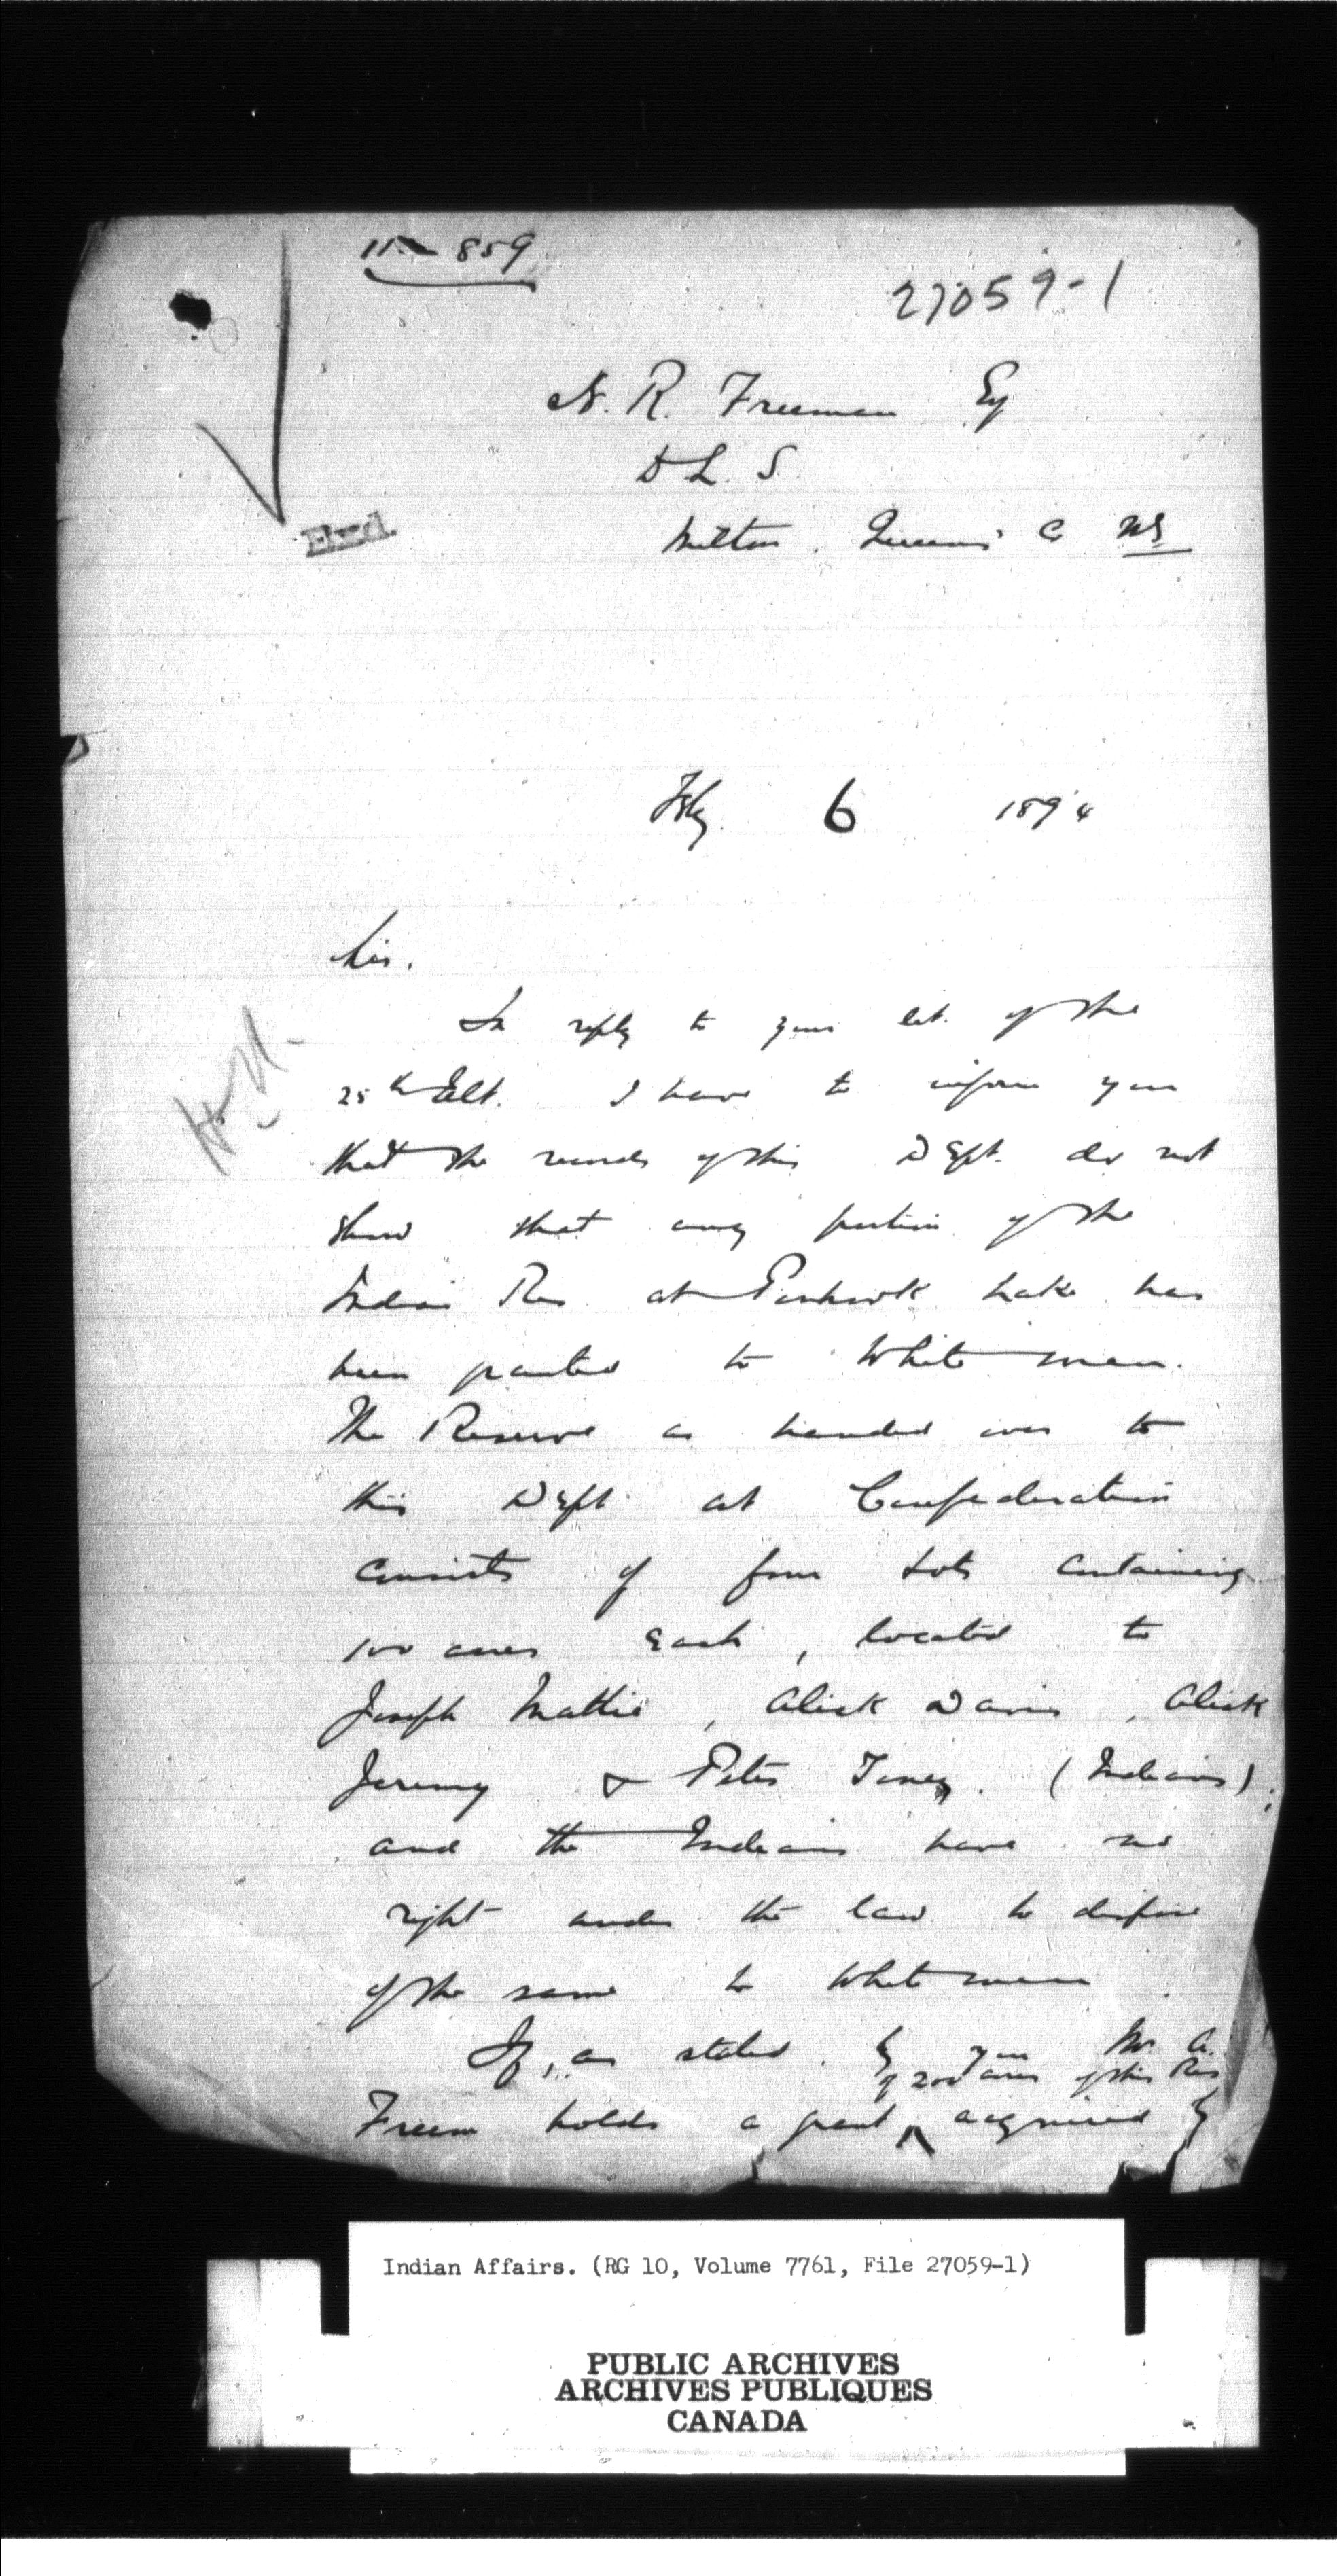 859
27059-1
N. R. Freeman Esq
D L. S.
Milton. Queens Co NS
End.
Feby. 6 1894
Sir.
In reply to your let. of the
25th Ult. I have to inform you
that the records of this Dept. do not
show that any portion of the
Indian Res at Ponhook Lake has
been granted to White men.
The Reserve as handed over to
this Dept at Confederation
consists of four Lots containing
100 acres each, located to
Joseph Mattie, Alick Davis, Alick
Jeremy & Peter Toney. (Indians);
and the Indians have no
right under the law to dispose
of the same to White men
If, as stated by you Mr. A.
of 200 acres of this Res
Freem holds a grant ^ acquired by
Indian Affairs. (RG 10, Volume 7761, File 27059-1)
PUBLIC ARCHIVES
ARCHIVES PUBLIQUES
CANADA